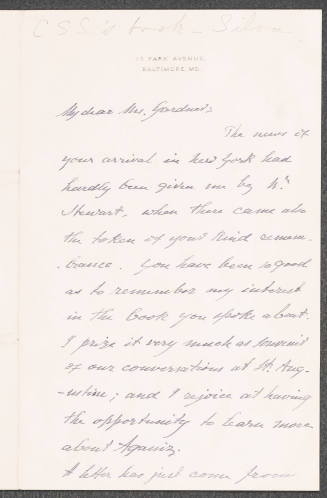 C S S's book - Silva
15 PARK AVENUE,
BALTIMORE, MD.
My dear Mrs. Gardner,
The news of
your arrival in New York had
hardly been given me by Mr.
Stewart, when there came also
the token of your kind remem-
-brance. You have been so good
as to remember my interest
in the book you spoke about.
I prize it very much as souvenir
of our conversations at St. Aug-
-ustine; and I rejoice at having
the opportunity to learn more
about Agassiz.
A letter has just come from